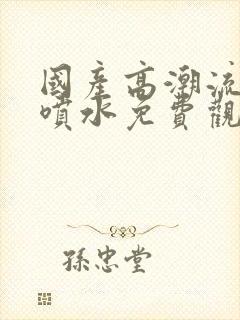 國產高潮流
噴水免費觀
孫忠堂